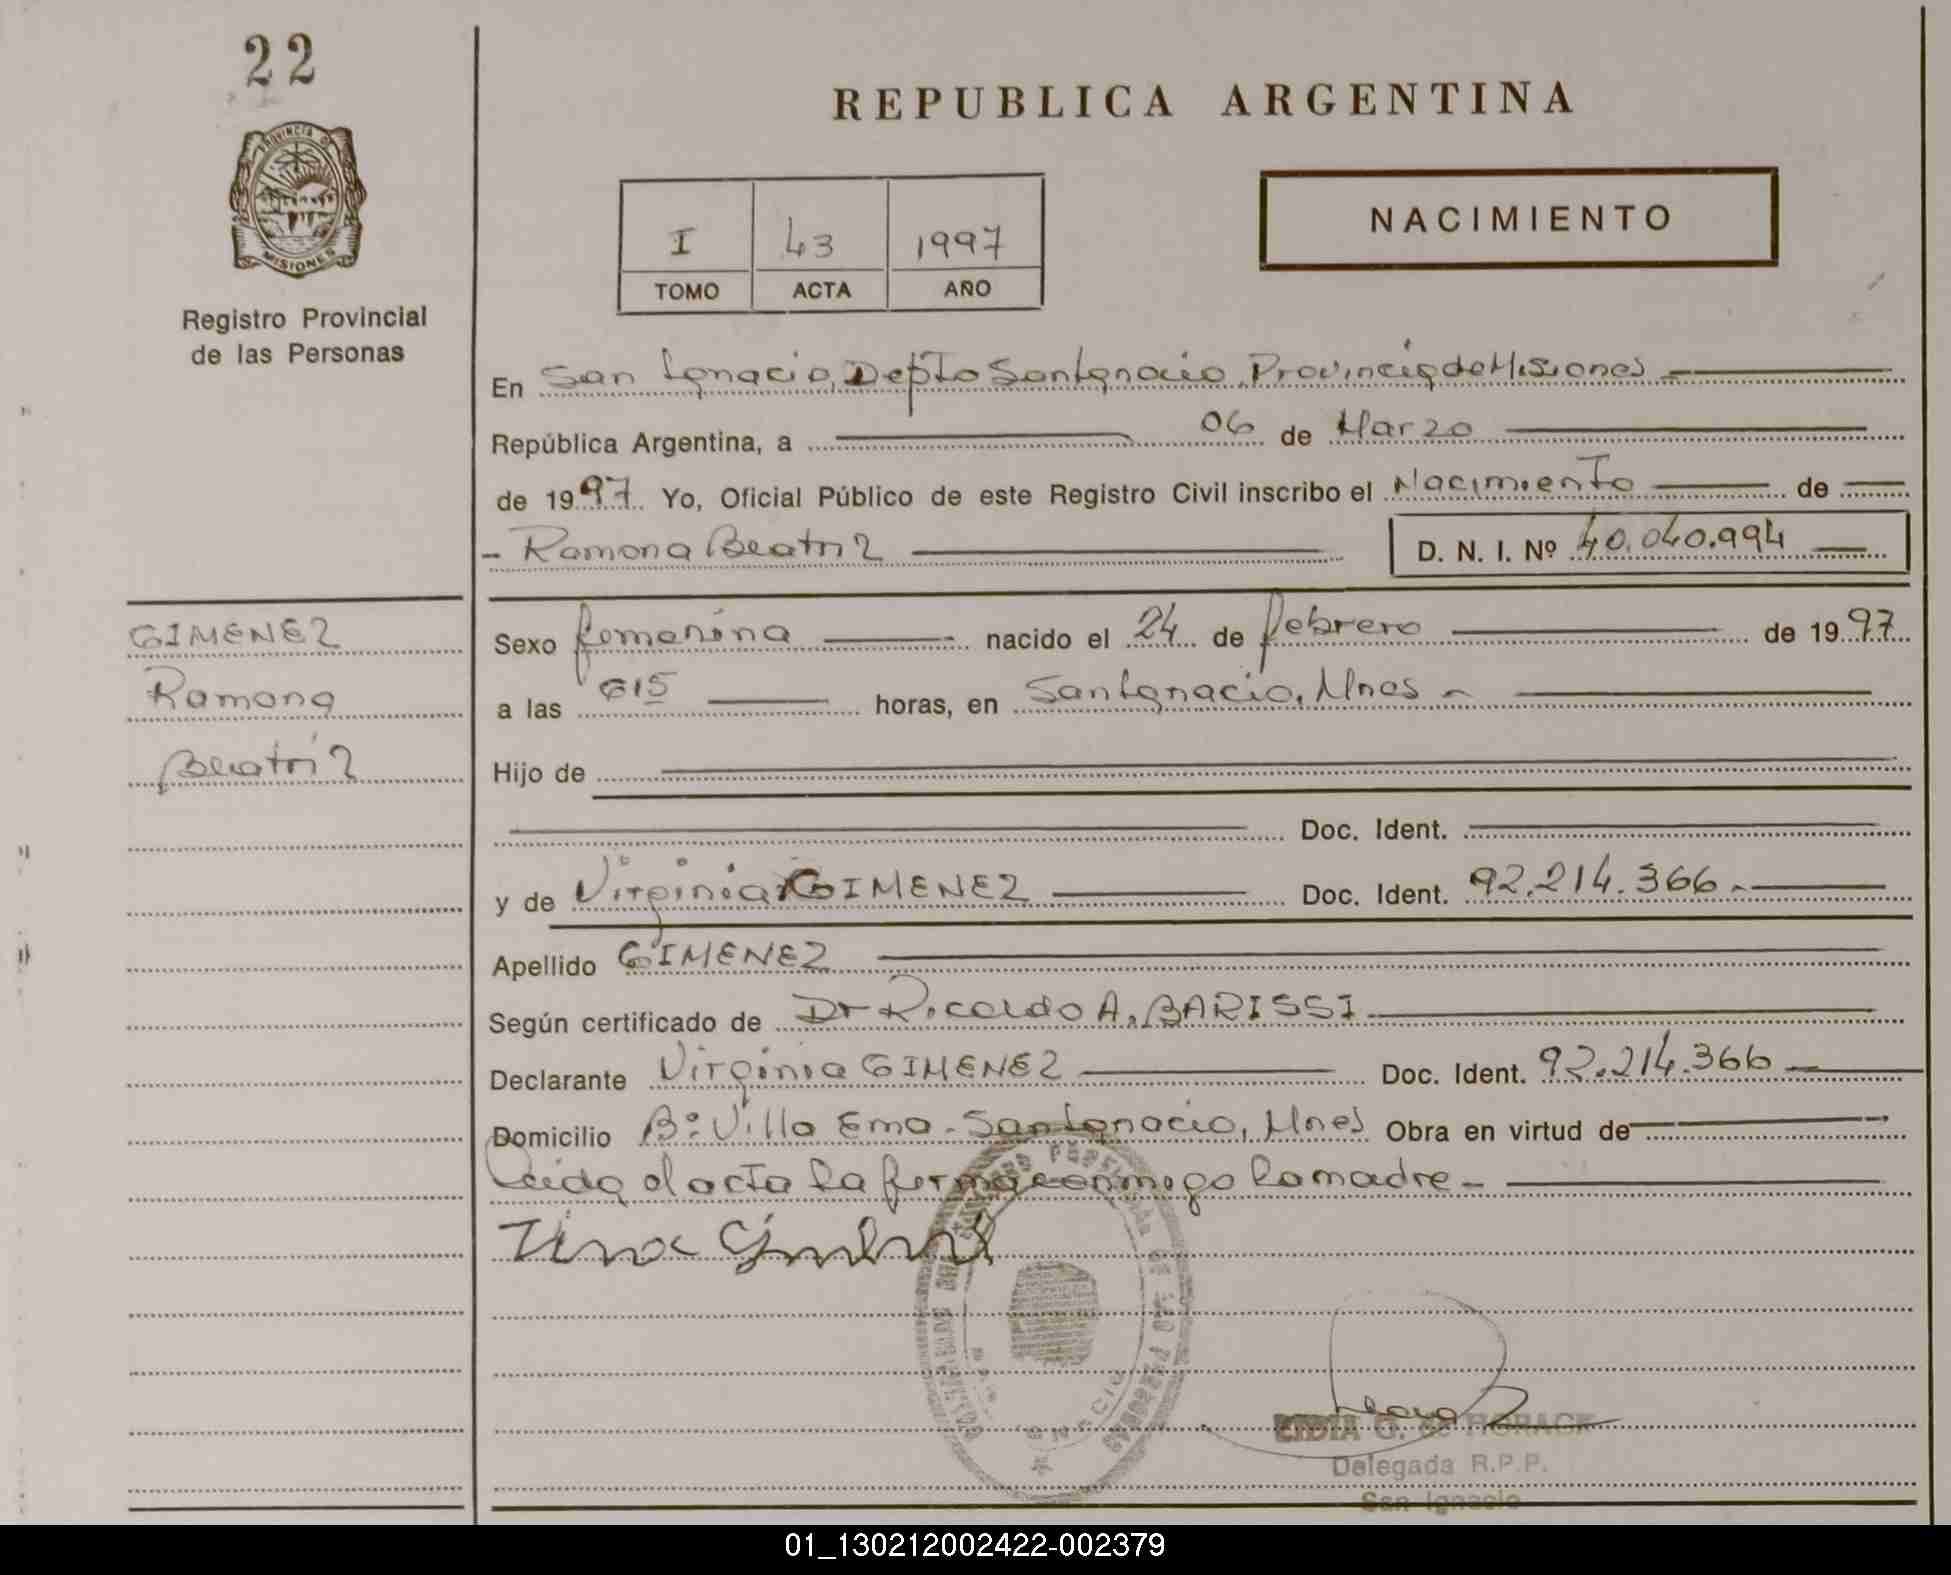 22
REPUBLICA ARGENTINA
PROVINCIA DE
MISIONES
Registro Provincial
de las Personas
I 43 1997
TOMO ACTA AÑO
NACIMIENTO
En San Ignacio, Depto San Ignacio, Provincia de Misiones
República Argentina, a 06 de Marzo
de 1997 Yo, Oficial Público de este Registro Civil inscribo el Nacimiento de
- Ramona Beatriz D. N. I. Nº 40.040.994
GIMENEZ
Ramona
Beatriz
Sexo femenina nacido el 24 de febrero de 1997
a las 615 horas, en San Ignacio, Mnes -
Hijo de
Doc. Ident.
y de Virginia GIMENEZ Doc. Ident. 92.214.366.-
Apellido GIMENEZ
Según certificado de Dr Ricardo A. BARISSI
Declarante Virginia GIMENEZ Doc. Ident. 92.214.366
Domicilio Bº Villa Ema - San Ignacio, Mnes Obra en virtud de
Leida el acta la firma conmigo la madre -
LIDIA G. de HORACK
Delegada R.P.P.
San Ignacio
01_130212002422-002379